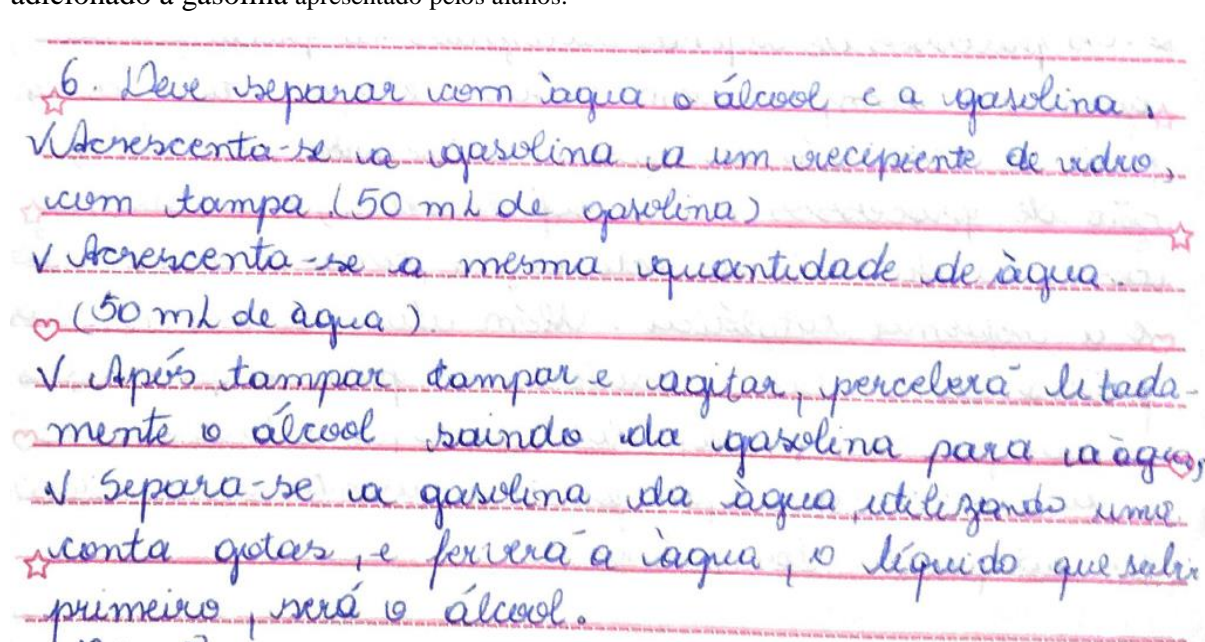 adicionado à gasolina apresentado pelos alunos.
6. Deve separar com àgua o álcool e a gasolina.
√ Acrescenta-se a gasolina a um recipiente de vidro,
com tampa (50 mL de gasolina)
√ Acrescenta-se a mesma quantidade de àgua.
(50 mL de àgua).
√ Após tampar tampar e agitar, perceberá
mente o álcool saindo da gasolina para a àgua,
√ Separa-se a gasolina da àgua, utilizando uma
conta gotas, e ferverá a àgua, o líquido que sair
primeiro, será o álcool.